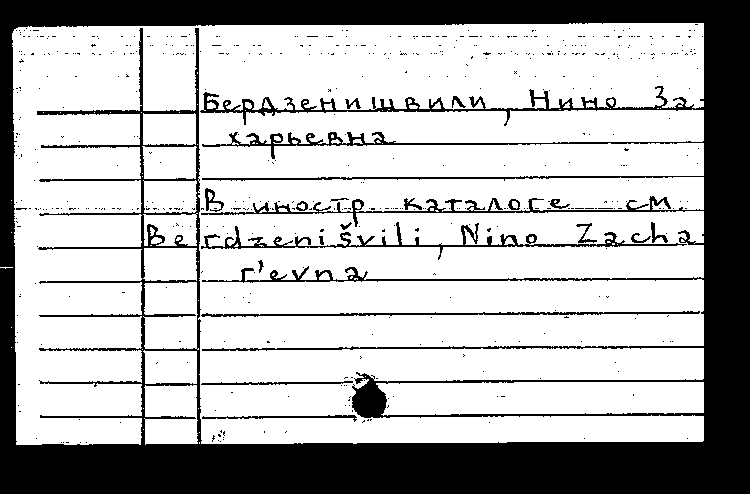 Бердзенишвили, Нино За-
харьевна
В иностр. каталоге см.
Berdzenišvili, Nino Zacha-
r'evna